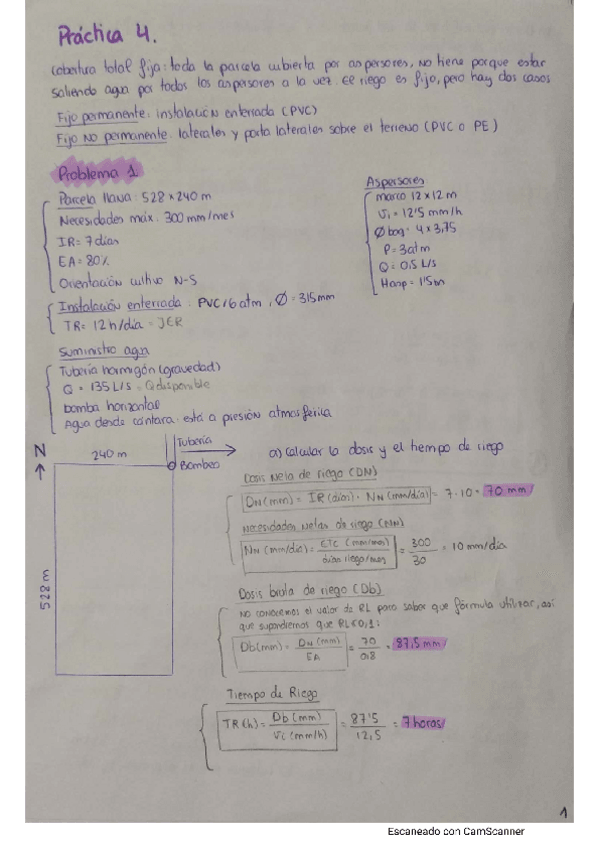 Práctica 4.
Cobertura total fija: toda la parcela cubierta por aspersores, no tiene porque estar
saliendo agua por todos los aspersores a la vez. El riego es fijo, pero hay dos casos
Fijo permanente: instalación enterrada (PVC)
Fijo NO permanente: laterales y porta laterales sobre el terreno (PVC o PE)
Problema 1
Parcela llana: 528 x 240 m
Necesidades máx: 300 mm/mes
IR = 7 días
EA = 80%
Orientación cultivo N-S
Aspersores
marco 12 x 12 m
Vi = 12'5 mm/h
Ø boq: 4 x 3,75
P = 3 atm
Q = 0,5 L/s
Hasp = 1'5m
Instalación enterrada: PVC/6 atm, Ø = 315mm
TR = 12h/día = JER
Suministro agua
Tubería hormigón (gravedad)
Q = 135 L/s = Q disponible
bomba horizontal
Agua desde cántara: está a presión atmosférica
N
240 m
Tubería
Bombeo
528 m
a) Calcular la dosis y el tiempo de riego
Dosis neta de riego (DN)
DN (mm) = IR (días) · NN (mm/día) = 7·10 = 70 mm/
Necesidades netas de riego (NN)
NN (mm/día) = ETC (mm/mes) / días riego/mes = 300 / 30 = 10 mm/día
Dosis bruta de riego (Db)
NO conocemos el valor de RL para saber que fórmula utilizar, así
que supondremos que RL<0,1:
Db(mm) = DN (mm) / EA = 70 / 0,8 = 87,5 mm/
Tiempo de Riego
TR (h) = Db (mm) / Vi (mm/h) = 87'5 / 12,5 = 7 horas/
1
Escaneado con CamScanner